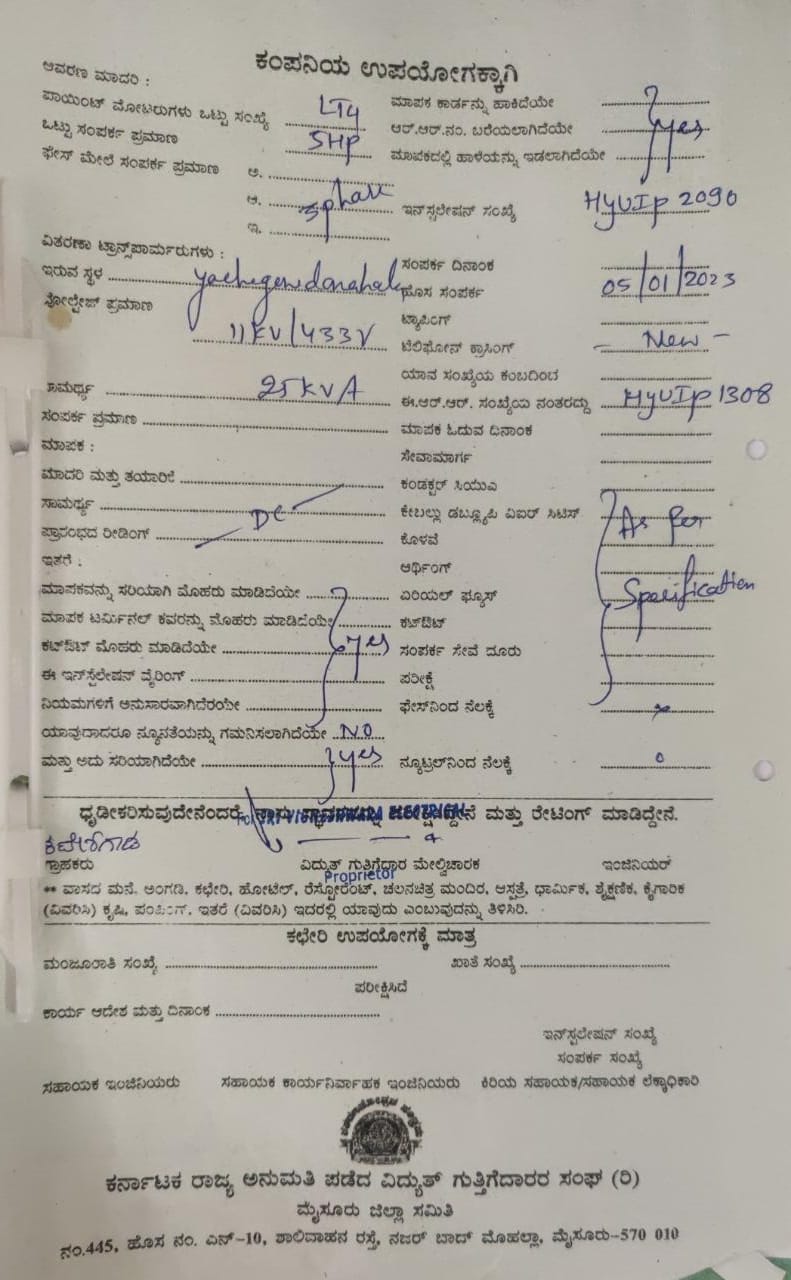 ಕಂಪನಿಯ ಉಪಯೋಗಕ್ಕಾಗಿ
ಆವರಣ ಮಾದರಿ :
ಪಾಯಿಂಟ್ ಮೋಟರುಗಳು ಒಟ್ಟು ಸಂಖ್ಯೆ LT4
ಒಟ್ಟು ಸಂಪರ್ಕ ಪ್ರಮಾಣ 5HP
ಫೇಸ್ ಮೇಲೆ ಸಂಪರ್ಕ ಪ್ರಮಾಣ ಅ.
ಆ. 3phase
ಇ.
ವಿತರಣಾ ಟ್ರಾನ್ಸ್‌ಪಾರ್ಮರುಗಳು :
ಇರುವ ಸ್ಥಳ
ವೋಲ್ಟೇಜ್ ಪ್ರಮಾಣ
11KV/433V
ಸಾಮರ್ಥ್ಯ 25KVA
ಸಂಪರ್ಕ ಪ್ರಮಾಣ
ಮಾಪಕ :
ಮಾದರಿ ಮತ್ತು ತಯಾರಿಕೆ
ಸಾಮರ್ಥ್ಯ DC
ಪ್ರಾರಂಭದ ರೀಡಿಂಗ್
ಇತರೆ :
ಮಾಪಕವನ್ನು ಸರಿಯಾಗಿ ಮೊಹರು ಮಾಡಿದೆಯೇ
ಮಾಪಕ ಟರ್ಮಿನಲ್ ಕವರನ್ನು ಮೊಹರು ಮಾಡಿದೆಯೇ
ಕಟ್‌ಔಟ್ ಮೊಹರು ಮಾಡಿದೆಯೇ yes
ಈ ಇನ್‌ಸ್ಟಲೇಷನ್ ವೈರಿಂಗ್
ನಿಯಮಗಳಿಗೆ ಅನುಸಾರವಾಗಿದೆರಂಯೇ
ಯಾವುದಾದರೂ ನ್ಯೂನತೆಯನ್ನು ಗಮನಿಸಲಾಗಿದೆಯೇ NO
ಮತ್ತು ಅದು ಸರಿಯಾಗಿದೆಯೇ yes
ಮಾಪಕ ಕಾರ್ಡನ್ನು ಹಾಕಿದೆಯೇ
ಆರ್.ಆರ್.ನಂ. ಬರೆಯಲಾಗಿದೆಯೇ yes
ಮಾಪಕದಲ್ಲಿ ಹಾಳೆಯನ್ನು ಇಡಲಾಗಿದೆಯೇ
ಇನ್‌ಸ್ಟಲೇಷನ್ ಸಂಖ್ಯೆ HyUIP 2090
ಸಂಪರ್ಕ ದಿನಾಂಕ
ಹೊಸ ಸಂಪರ್ಕ 05/01/2023
ಟ್ಯಾಪಿಂಗ್
ಟೆಲಿಫೋನ್ ಕ್ರಾಸಿಂಗ್ – New –
ಯಾವ ಸಂಖ್ಯೆಯ ಕಂಬದಿಂದ
ಈ.ಆರ್.ಆರ್. ಸಂಖ್ಯೆಯ ನಂತರದ್ದು HyUIP 1308
ಮಾಪಕ ಓದುವ ದಿನಾಂಕ
ಸೇವಾಮಾರ್ಗ
ಕಂಡಕ್ಟರ್ ಸಿಯುಎ
ಕೇಬಲ್ಲು ಡಬ್ಲ್ಯೂಪಿ ವಿಐರ್ ಸಿಟಿಸ್ As per
ಕೊಳವೆ
ಆರ್ಥಿಂಗ್
ಏರಿಯಲ್ ಫ್ಯೂಸ್ Specification
ಕಟ್‌ಔಟ್
ಸಂಪರ್ಕ ಸೇವೆ ದೂರು
ಪರೀಕ್ಷೆ
ಫೇಸ್‌ನಿಂದ ನೆಲಕ್ಕೆ
ನ್ಯೂಟ್ರಲ್‌ನಿಂದ ನೆಲಕ್ಕೆ 0
ಧೃಡೀಕರಿಸುವುದೇನೆಂದರೆ, ಮತ್ತು ರೇಟಿಂಗ್ ಮಾಡಿದ್ದೇನೆ.
ಗ್ರಾಹಕರು ವಿದ್ಯುತ್ ಗುತ್ತಿಗೆದಾರ ಮೇಲ್ವಿಚಾರಕ ಇಂಜಿನಿಯರ್
Proprietor
** ವಾಸದ ಮನೆ. ಅಂಗಡಿ, ಕಛೇರಿ, ಹೋಟೆಲ್, ರೆಸ್ಟೋರೆಂಟ್, ಚಲನಚಿತ್ರ ಮಂದಿರ, ಆಸ್ಪತ್ರೆ, ಧಾರ್ಮಿಕ, ಶೈಕ್ಷಣಿಕ, ಕೈಗಾರಿಕ
(ವಿವರಿಸಿ) ಕೃಷಿ, ಪಂಪಿಂಗ್. ಇತರೆ (ವಿವರಿಸಿ) ಇದರಲ್ಲಿ ಯಾವುದು ಎಂಬುವುದನ್ನು ತಿಳಿಸಿರಿ.
ಕಛೇರಿ ಉಪಯೋಗಕ್ಕೆ ಮಾತ್ರ
ಮಂಜೂರಾತಿ ಸಂಖ್ಯೆ ಖಾತೆ ಸಂಖ್ಯೆ
ಪರೀಕ್ಷಿಸಿದೆ
ಕಾರ್ಯ ಆದೇಶ ಮತ್ತು ದಿನಾಂಕ
ಇನ್‌ಸ್ಟಲೇಷನ್ ಸಂಖ್ಯೆ
ಸಂಪರ್ಕ ಸಂಖ್ಯೆ
ಸಹಾಯಕ ಇಂಜಿನಿಯರು ಸಹಾಯಕ ಕಾರ್ಯನಿರ್ವಾಹಕ ಇಂಜಿನಿಯರು ಕಿರಿಯ ಸಹಾಯಕ/ಸಹಾಯಕ ಲೆಕ್ಕಾಧಿಕಾರಿ
ಕರ್ನಾಟಕ ರಾಜ್ಯ ಅನುಮತಿ ಪಡೆದ ವಿದ್ಯುತ್ ಗುತ್ತಿಗೆದಾರರ ಸಂಘ (ರಿ)
ಮೈಸೂರು ಜಿಲ್ಲಾ ಸಮಿತಿ
ನಂ.445, ಹೊಸ ನಂ. ಎನ್-10, ಶಾಲಿವಾಹನ ರಸ್ತೆ, ನಜರ್ ಬಾದ್ ಮೊಹಲ್ಲಾ, ಮೈಸೂರು-570 010